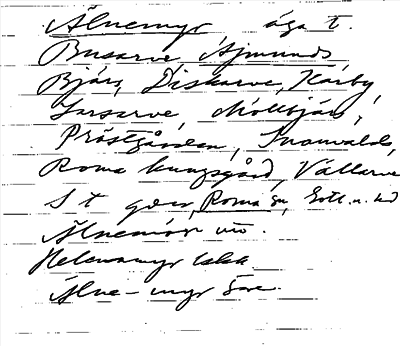 Älnemyr äga t.
Busarve, Ajmunds
Bjärs, Diskarve, Kärby,
Larsarve, Mölbjärs,
Prästgården, Snovalds,
Roma kungsgård, Vällarve
St gen Roma sn, Gotl. n. hd
Älnemör
Helenamyr
Älne-myr